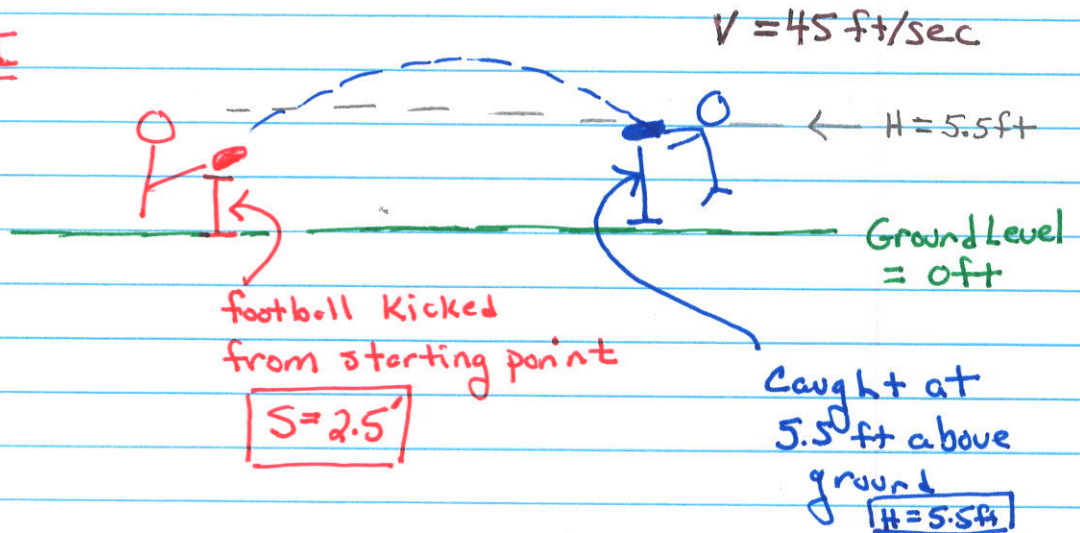 I
V = 45 ft/sec
← H = 5.5ft
Ground Level
= 0ft
football Kicked
from starting point
S = 2.5'
Caught at
5.5 ft above
ground
H = 5.5ft